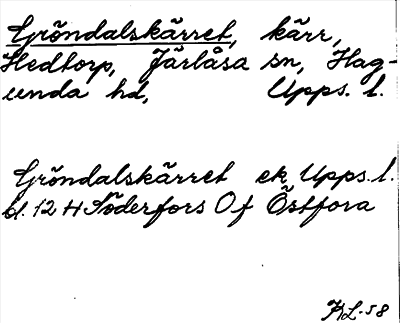 Gröndalskärret, kärr,
Hedtorp, Järlåsa sn, Hag-
unda hd, Upps. l.
Gröndalskärret ek Upps. l.
bl. 12 H Söderfors Of Östfora
HL-58